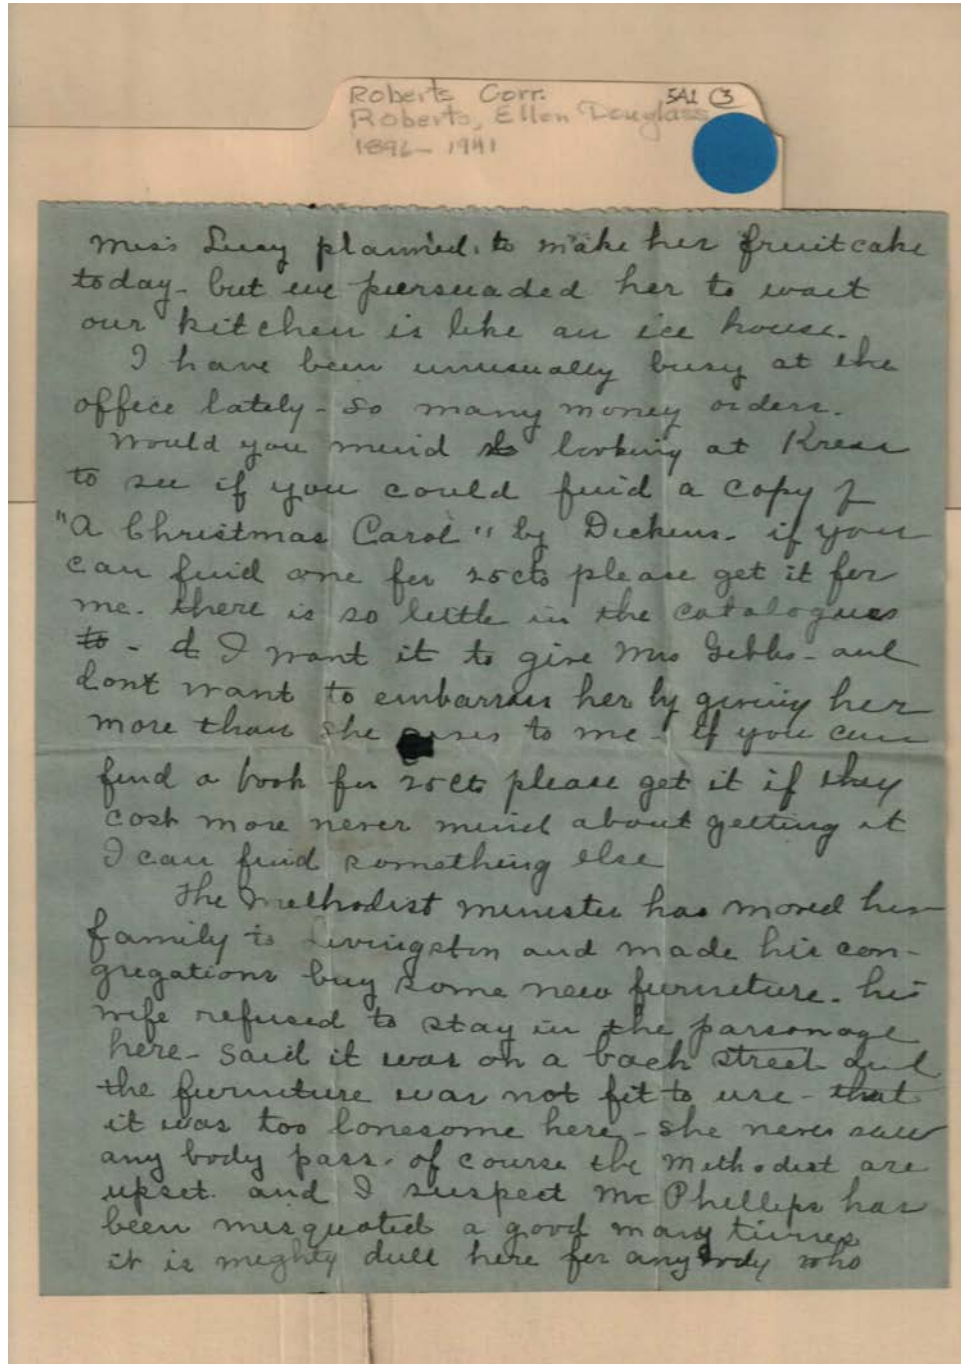 Roberts Corr. 5A1 (3)
Roberts, Ellen Douglass
1896-1941
Miss Lucy planned to make her fruitcake
today - but we persuaded her to wait
our kitchen is like an ice house.
I have been unusually busy at the
office lately - so many money orders.
Would you mind looking at Kress
to see if you could find a copy of
"A Christmas Carol" by Dickens. if you
can find one for 25cts please get it for
me. there is so little in the catalogues
to - I want it to give Mrs Gibbs - and
dont want to embarrass her by giving her
more than she gives to me - If you can
find a book for 25cts please get it if they
cost more never mind about getting it
I can find something else
The Methodist minister has moved his
family to Livingston and made his con-
gregations buy some new furniture. his
wife refused to stay in the parsonage
here - said it was on a back street and
the furniture was not fit to use - that
it was too lonesome here - she never saw
any body pass. of course the Methodist are
upset. and I suspect Mr Phillips has
been misquoted a good many times
it is mighty dull here for anybody who